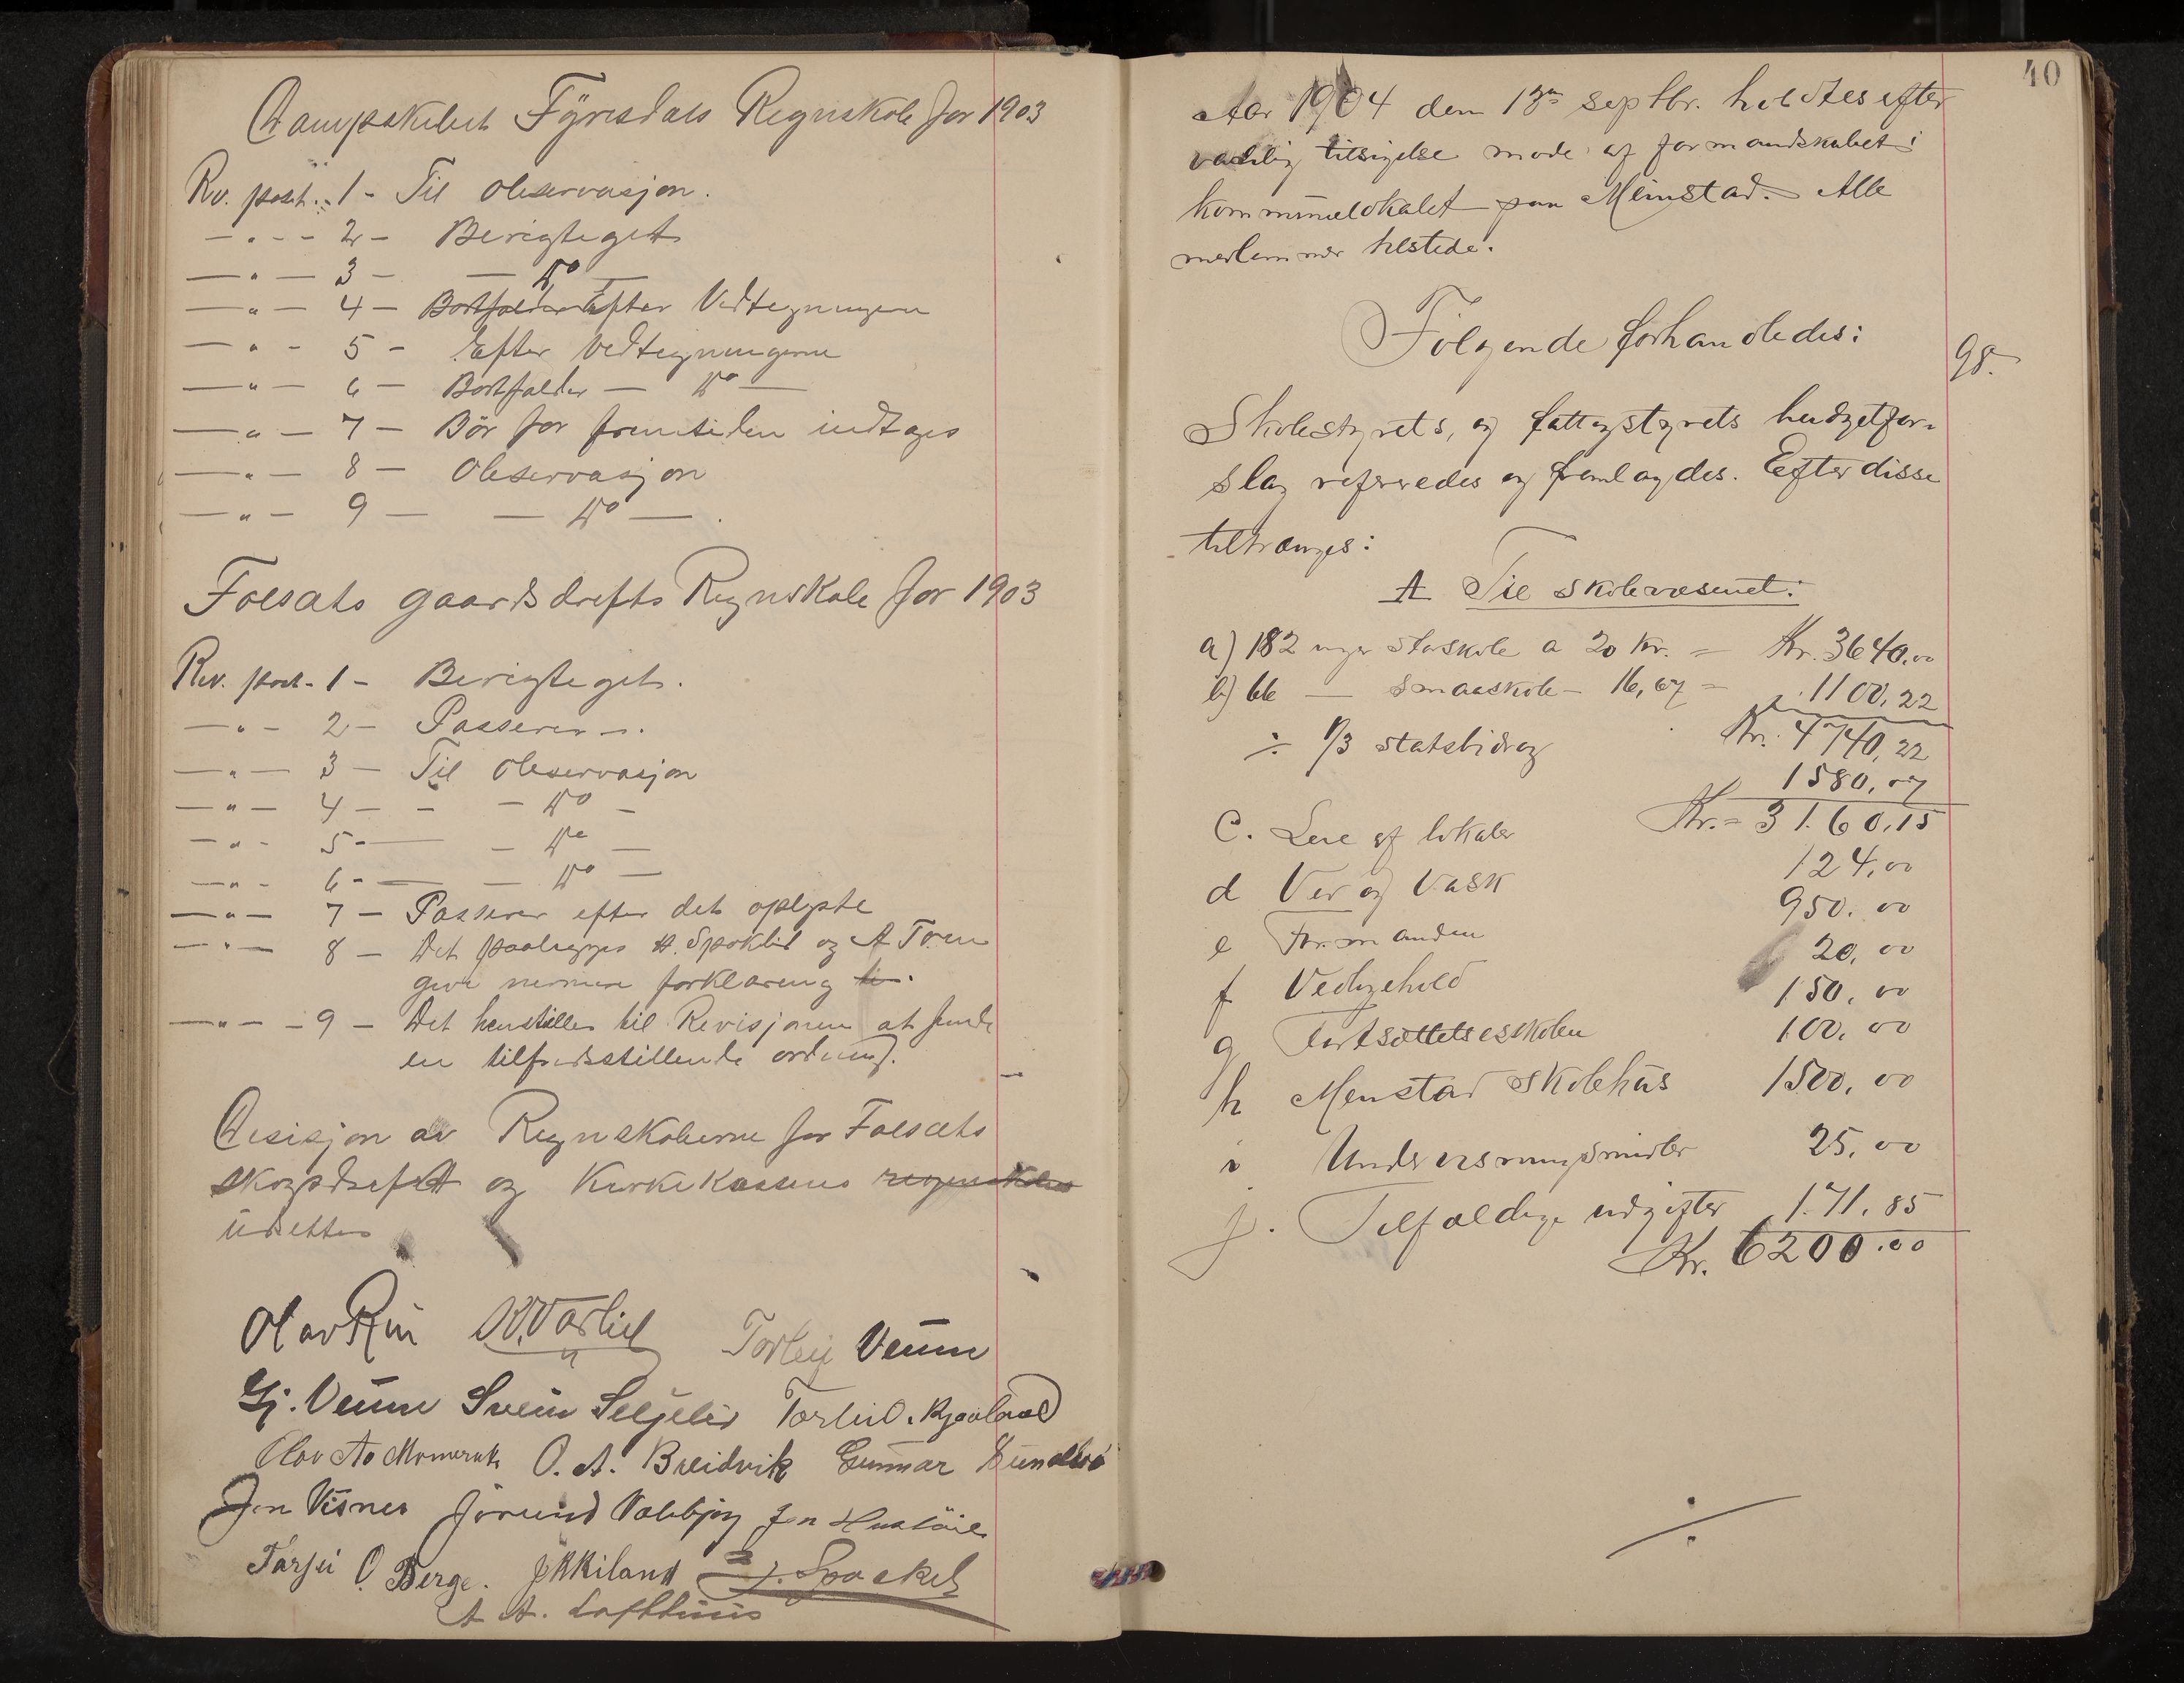 Dampskibet Fyresdals Regnskab for 1903
Rv. post. 1 - Til Observasjon.
— " — 2 - Berigteget
— " — 3 - — Do —
— " — 4 - Bortfalder Efter Vedtegningen
— " — 5 - Efter Vedtegningerne
— " — 6 - Bortfalder — Do —
— " — 7 - Bör for fremtiden indtages
— " — 8 - Observasjon
— " — 9 - — Do — .
Foldsæts gaardsdrifts Regnskab for 1903
Rev. post - 1 - Berigteget.
— " — 2 - Passerer —.
— " — 3 - Til Observasjon
— " — 4 - - - Do -
— " — 5 - — - Do —
— " — 6 - — — Do —
— " — 7 - Passerer efter det oplyste
— " — 8 - Det paalegges H. Spoklid og A Tveen
give nermere forklaring
— " — 9 - Det henstilles til Revisjonen at finde
en tilfredsstillende ordning.
Desisjon av Regnskaberne for Foldsæts
skogsdrift og Kirkekassens regnskaber
udsettes
Olav Rui K. Vårlid Torleij Veum
Gj. Veum Svein Seljelid Torleiv. Kjavland
Olav As Momrak O. A. Breidvik Gunnar Sundbö
Jon Visnes Jörund Valebjörg Jon
Tarjei O. Berge. J K Kiland J. Spockeli
A A. Lofthuus
40
Aar 1904 den 13de septbr. holdtes efter
vanlig tilsigelse møde af formandskabet i
kommunelokalet paa Meinstad. Alle
medlemmer tilstede.
Følgende forhandledes:
98.
Skolestyrets, og fattigstyrets budgetfor-
slag refereredes og fremlagdes. Efter disse
tiltrænges:
A Til skolevæsenet:
a) 182 uger storskole a 20 kr. = Kr. 3640.00
b) 66 — smaaskole - 16,67 = 1100,22
Kr. 4740,22
÷ 1/3 statsbidrag 1580,07
Kr. = 3160,15
C. Leie af lokaler 124,00
d Ved og Vask 950.00
e Formanden 20,00
f Vedligehold 150,00
g Fortsættelsesskolen 100,00
h Menstad Skolehus 1500,00
i Undervisningsmidler 25,00
j. Tilfældige udgifter 171,85
Kr. 6200.00